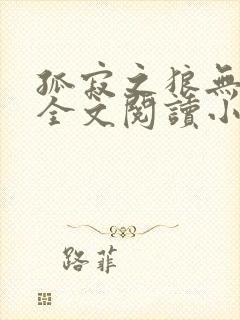 孤寂之狼無
全文閱讀小
路菲